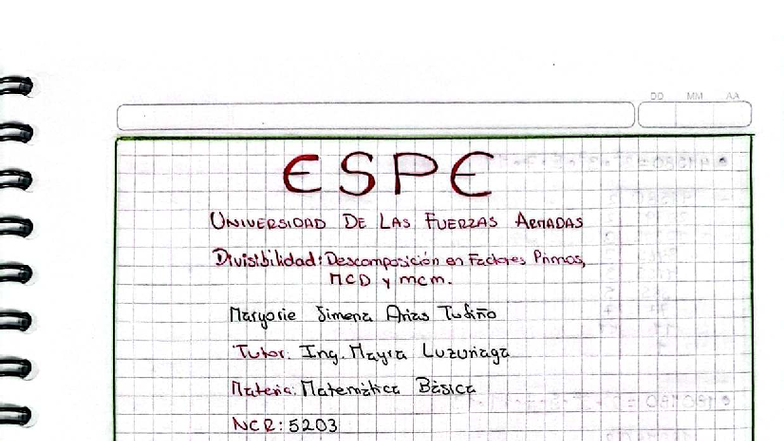 DD MM AA
ESPE
UNIVERSIDAD DE LAS FUERZAS ARMADAS
Divisibilidad: Descomposición en Factores Primos,
MCD y mcm.
Marjorie Jimena Arias Tufiño
Tutor: Ing. Mayra Luzuriaga
Materia: Matemática Básica
NCR: 5203